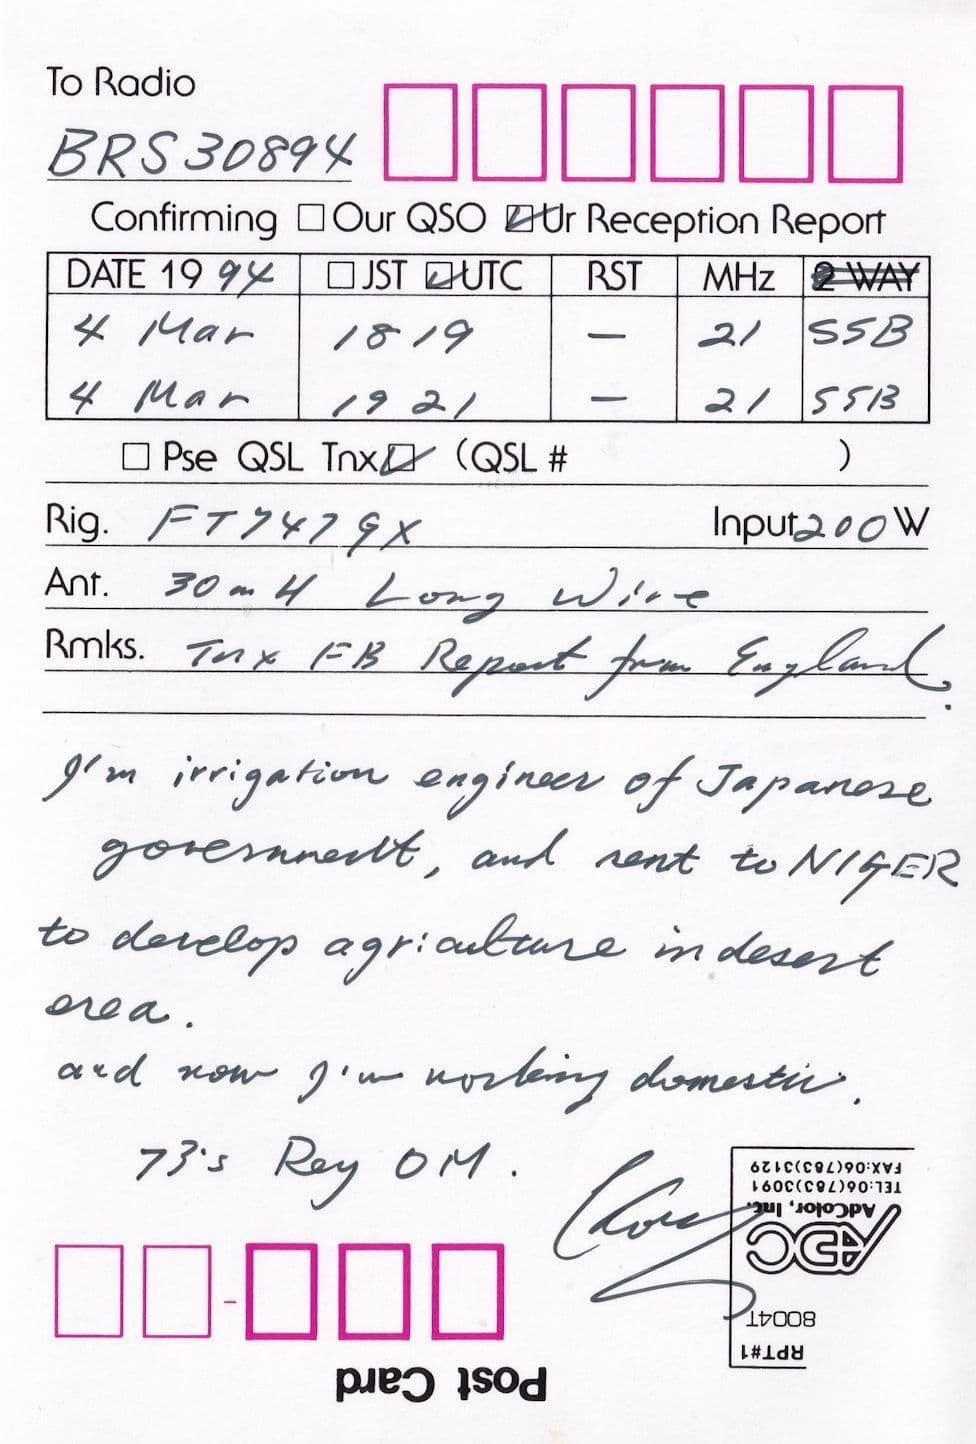 To Radio
BRS 30894
Confirming □ Our QSO ☑ Ur Reception Report
DATE 19 94 □ JST ☑ UTC RST MHz 2 WAY
4 Mar 1819 — 21 SSB
4 Mar 1921 — 21 SSB
□ Pse QSL Tnx ☑ (QSL # )
Rig. FT747GX Input 200 W
Ant. 30mH Long Wire
Rmks. Tnx FB Report from England.
I'm irrigation engineer of Japanese
government, and sent to NIGER
to develop agriculture in desert
area.
and now I'm working domestic.
73's Rey OM.
Post Card
RPT#1
80041
ADC
AdColor, Inc.
TEL:06(783)3091
FAX:06(783)3129